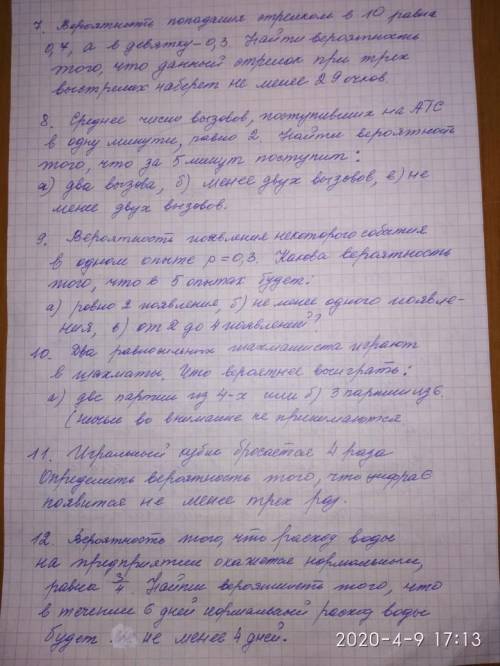 7. Вероятность попадания стрелком в 10 равна
0,7, а в девятку - 0,3. Найти вероятность
того, что данный стрелок при трех
выстрелах наберет не менее 29 очков.
8. Среднее число вызовов, поступивших на АТС
в одну минути, равно 2. Найти вероятность
того, что за 5 минут поступит:
а) два вызова, б) менее двух вызовов, в) не
менее двух вызовов.
9. Вероятность появления некоторого события
в одном опыте p=0,3. Какова вероятность
того, что в 5 опытах будет:
а) ровно 2 появления, б) не менее одного появле-
ния, в) от 2 до 4 появлений?
10. Два равносильных шахматиста играют
в шахматы. Что вероятнее выиграть:
а) две партии из 4-х или б) 3 партии из 6.
(ничьи во внимание не принимаются
11. Игральный кубик бросается 4 раза
Определить вероятность того, что цифра 6
появится не менее трех раз.
12. Вероятность того, что расход воды
на предприятии окажется нормальным,
равна 3/4. Найти вероятность того, что
в течении 6 дней нормальный расход воды
будет не менее 4 дней.
2020-4-9 17:13